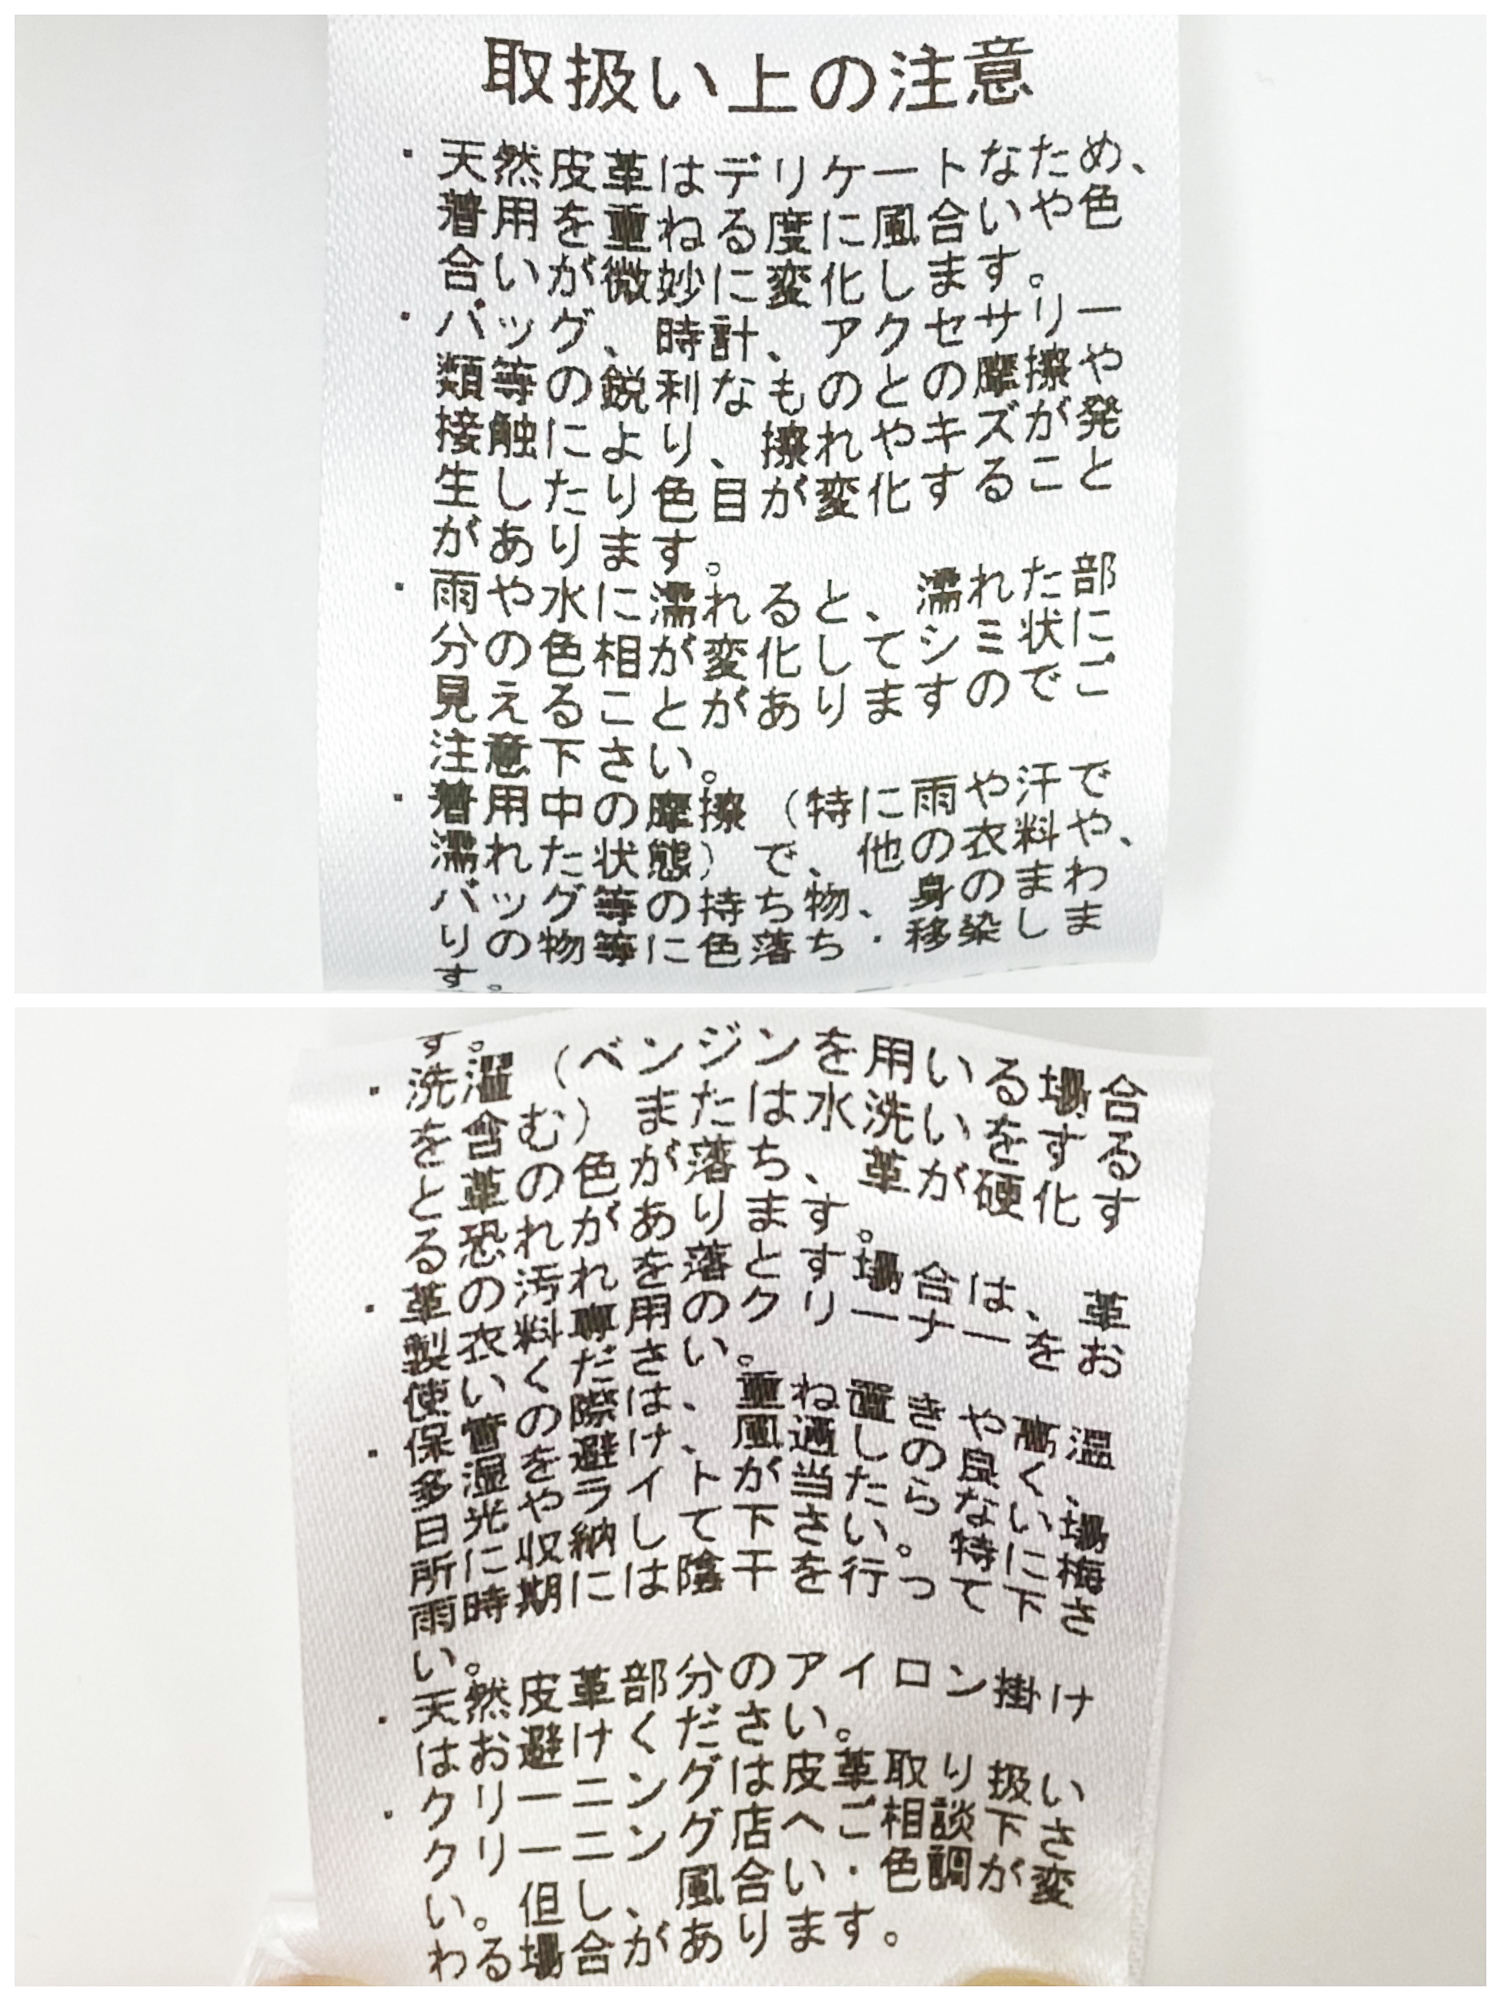 取扱い上の注意
・天然皮革はデリケートなため、
着用を重ねる度に風合いや色
合いが微妙に変化します。
・バッグ、時計、アクセサリー
類等の鋭利なものとの摩擦や
接触により、擦れやキズが発
生したり色目が変化すること
があります。
・雨や水に濡れると、濡れた部
分の色相が変化してシミ状に
見えることがありますのでご
注意下さい。
・着用中の摩擦（特に雨や汗で
濡れた状態）で、他の衣料や、
バッグ等の持ち物、身のまわ
りの物等に色落ち・移染しま
す。
す。
・洗濯（ベンジンを用いる場合
を含む）または水洗いをする
と革の色が落ち、革が硬化す
る恐れがあります。
・革の汚れを落とす場合は、革
製衣料専用のクリーナーをお
使いください。
・保管の際は、重ね置きや高温
多湿を避け、風通しの良く、
日光やライトが当たらない場
所に収納して下さい。特に梅
雨時期には陰干を行って下さ
い。
・天然皮革部分のアイロン掛け
はお避けください。
・クリーニングは皮革取り扱い
クリーニング店へご相談下さ
い。但し、風合い・色調が変
わる場合があります。